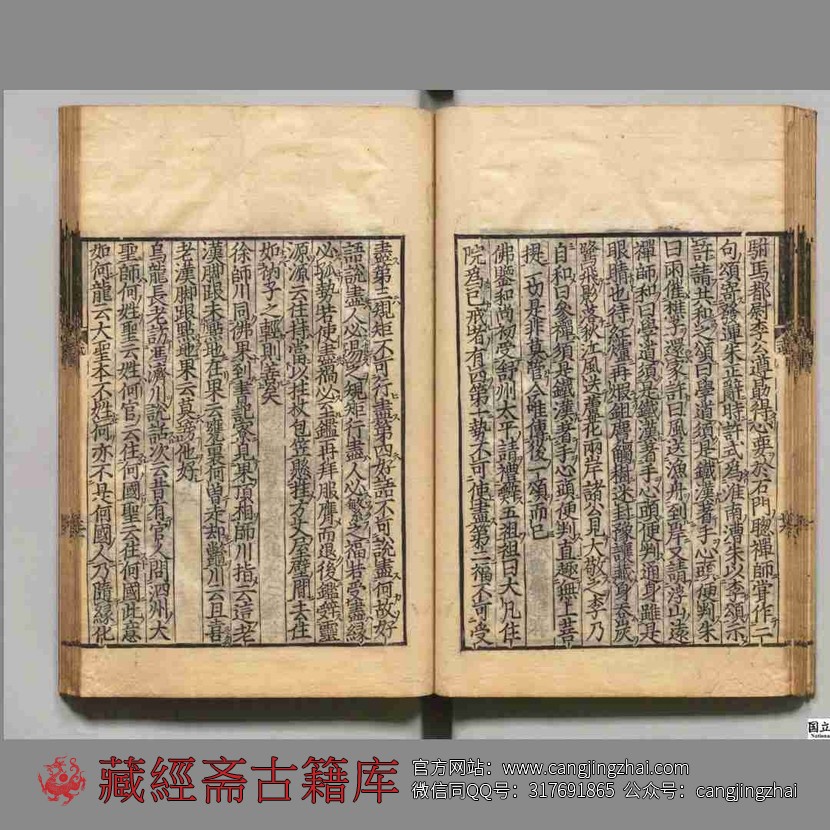 駙馬都尉李公遵勗得心要於石門聰禪師嘗作二
句頌寄發運朱正辭時許式為淮南漕朱以李頌示
許請共和之頌曰學道須是鐵漢著手心頭便判朱
曰雨催樵子還家許曰風送漁舟到岸又請浮山遠
禪師和曰學道須是鐵漢著手心頭便判通身雖是
眼睛也待紅爐再煅鉏麑觸樹迷封豫讓藏身吞炭
鷺飛影落秋江風送蘆花兩岸諸公見大敬之李乃
自和曰參禪須是鐵漢著手心頭便判直趣無上菩
提一切是非莫管今唯傳後一頌而已
佛鑒和尚初受舒州太平請禮辭五祖祖曰大凡住
院為已戒者有四第一勢不可使盡第二福不可受
盡第三規矩不可行盡第四好語不可說盡何故好
語說盡人必易之規矩行盡人必繁之福若受盡緣
必孤勢若使盡禍必至鑑再拜服膺而退後鑑辭靈
源源云住持當以拄杖包笠懸挂方丈屋壁間去住
如衲子之輕則善矣
徐師川同佛果到書記寮見果頂相師川指云這老
漢脚跟未點地在果云甕裏何曾走却鱉川云且喜
老漢脚跟點地果云莫謗他好
烏龍長老訪馮濟川說話次云昔有官人問泗州大
聖師何姓聖云姓何官云住何國聖云住何國此意
如何龍云大聖本不姓何亦不是何國人乃隨緣化
藏經斋古籍库
官方网站：www.cangjingzhai.com
微信同QQ号：317691865 公众号：cangjingzhai
国立
Nationa